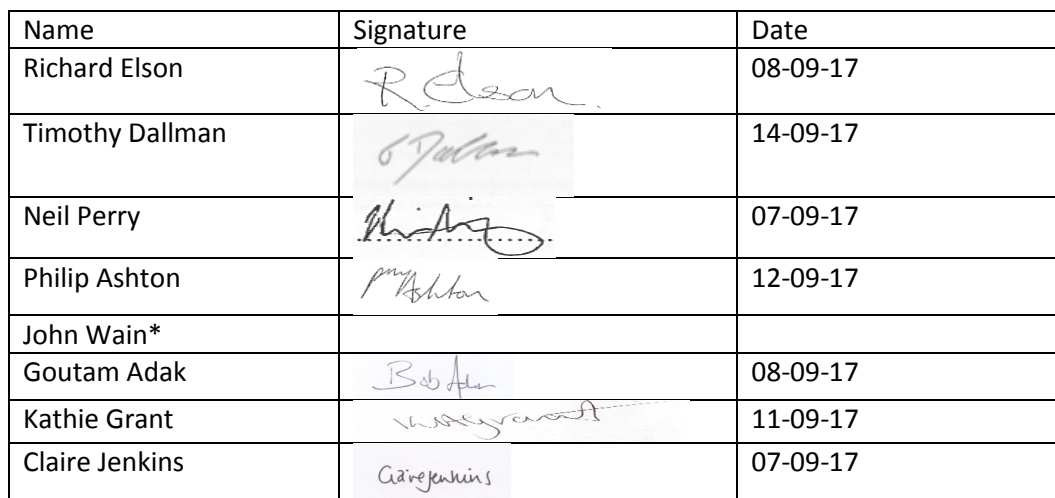 Name Signature Date
Richard Elson R. Elson. 08-09-17
Timothy Dallman 14-09-17
Neil Perry 07-09-17
Philip Ashton Ashton 12-09-17
John Wain*
Goutam Adak Bob Adak 08-09-17
Kathie Grant 11-09-17
Claire Jenkins Claire Jenkins 07-09-17